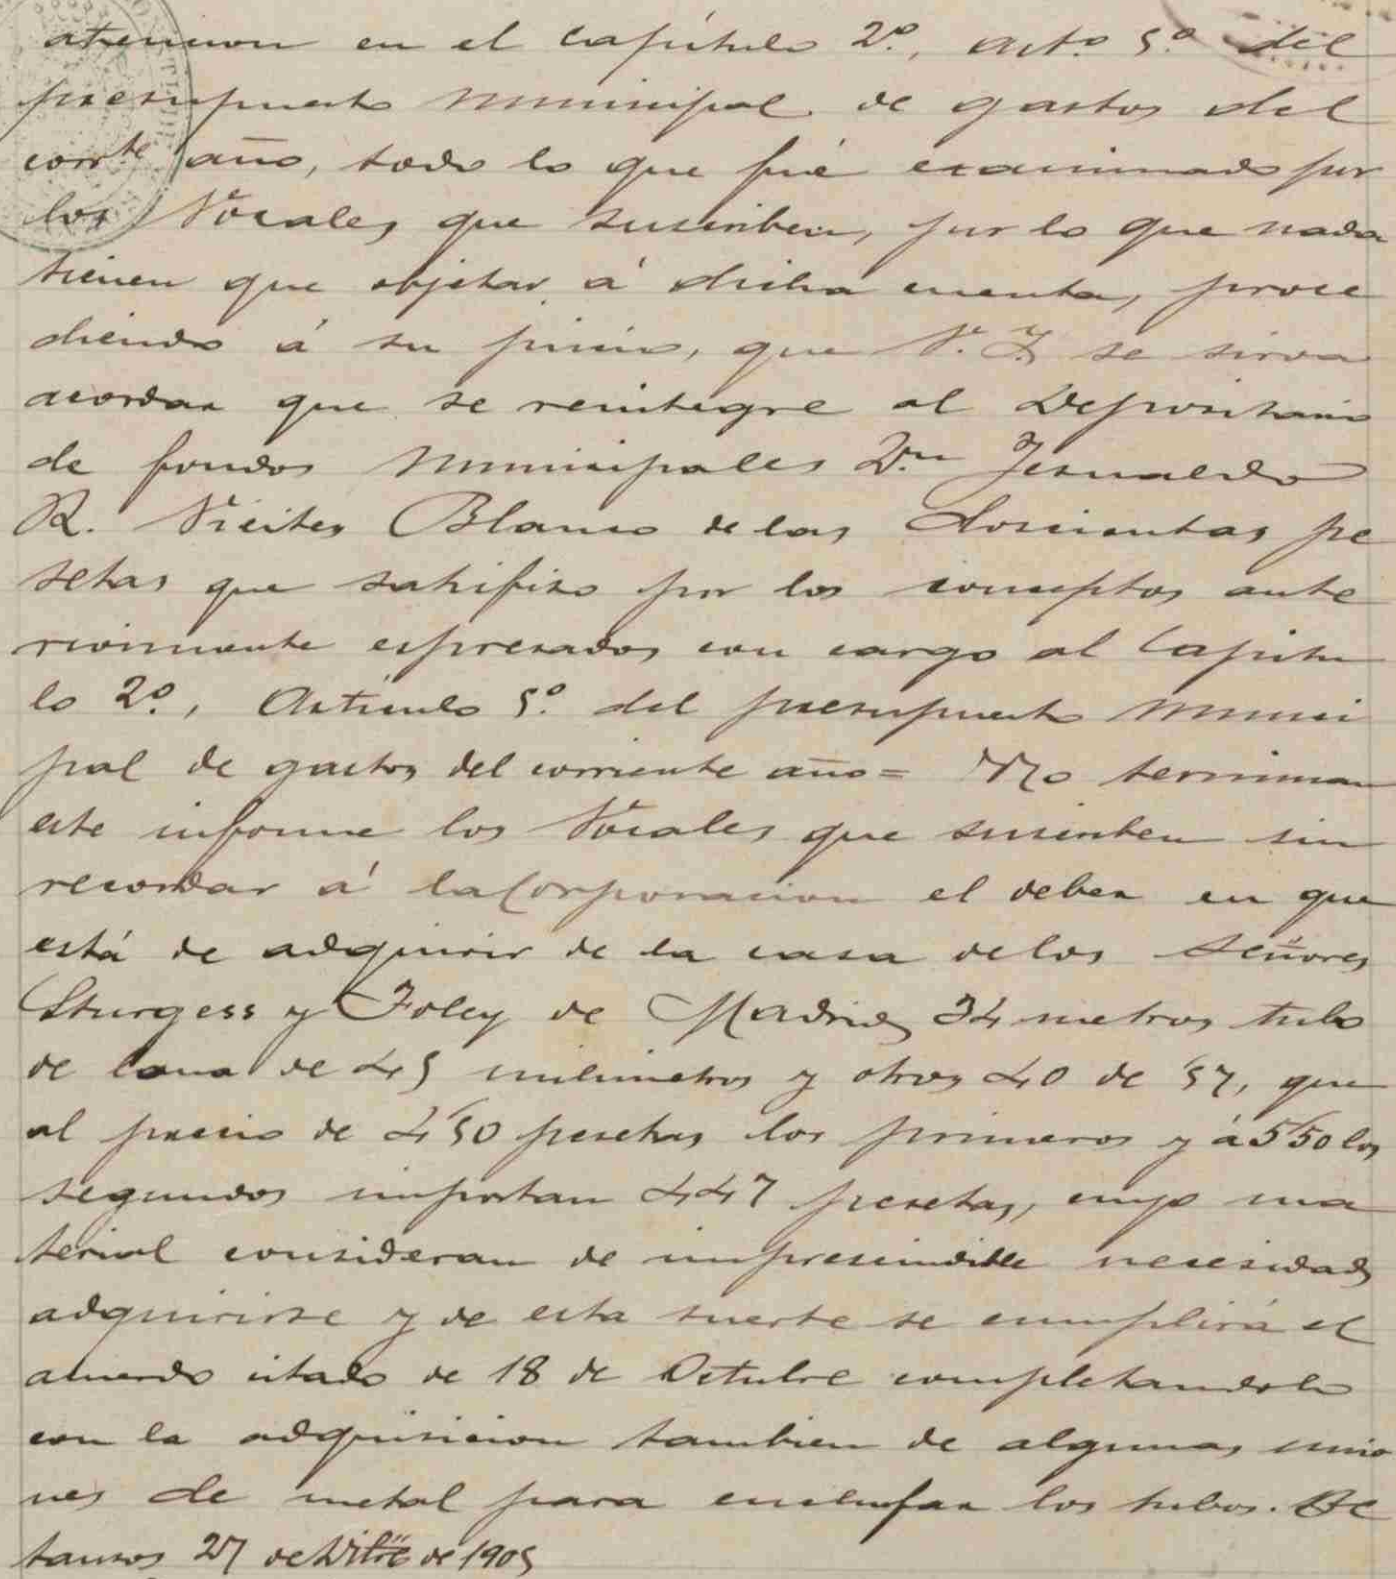 atencion en el Capítulo 2º, art.º 5.º del
presupuesto Municipal de gastos del
corrte año, todo lo que fué examinado por
los Vocales que suscriben, por lo que nada
tienen que objetar á dicha cuenta, proce
diendo á su juicio, que V. I. se sirva
acordar que se reintegre al Depositario
de fondos Municipales Dn Jesualdo
R. Vieites Blanco de las doscientas pe
setas que satisfizo por los conceptos ante
riormente espresados con cargo al Capitu
lo 2º, Articulo 5º del presupuesto Munici
pal de gastos del corriente año = No terminan
este informe los Vocales que suscriben sin
recordar á la Corporacion el deber en que
está de adquirir de la casa de los Señores
Sturgess y Foley de Madrid 34 metros tubo
de lona de 45 milimetros y otros 40 de 57, que
al precio de 4'50 pesetas los primeros y á 5'50 los
segundos importan 447 pesetas, cuyo ma
terial consideran de imprescindible necesidad
adquirirse y de esta suerte se cumplirá el
acuerdo citado de 18 de Octubre completandolo
con la adquisicion tambien de algunas unio
nes de metal para enchufar los tubos. Be
tanzos 27 de Dibre de 1905